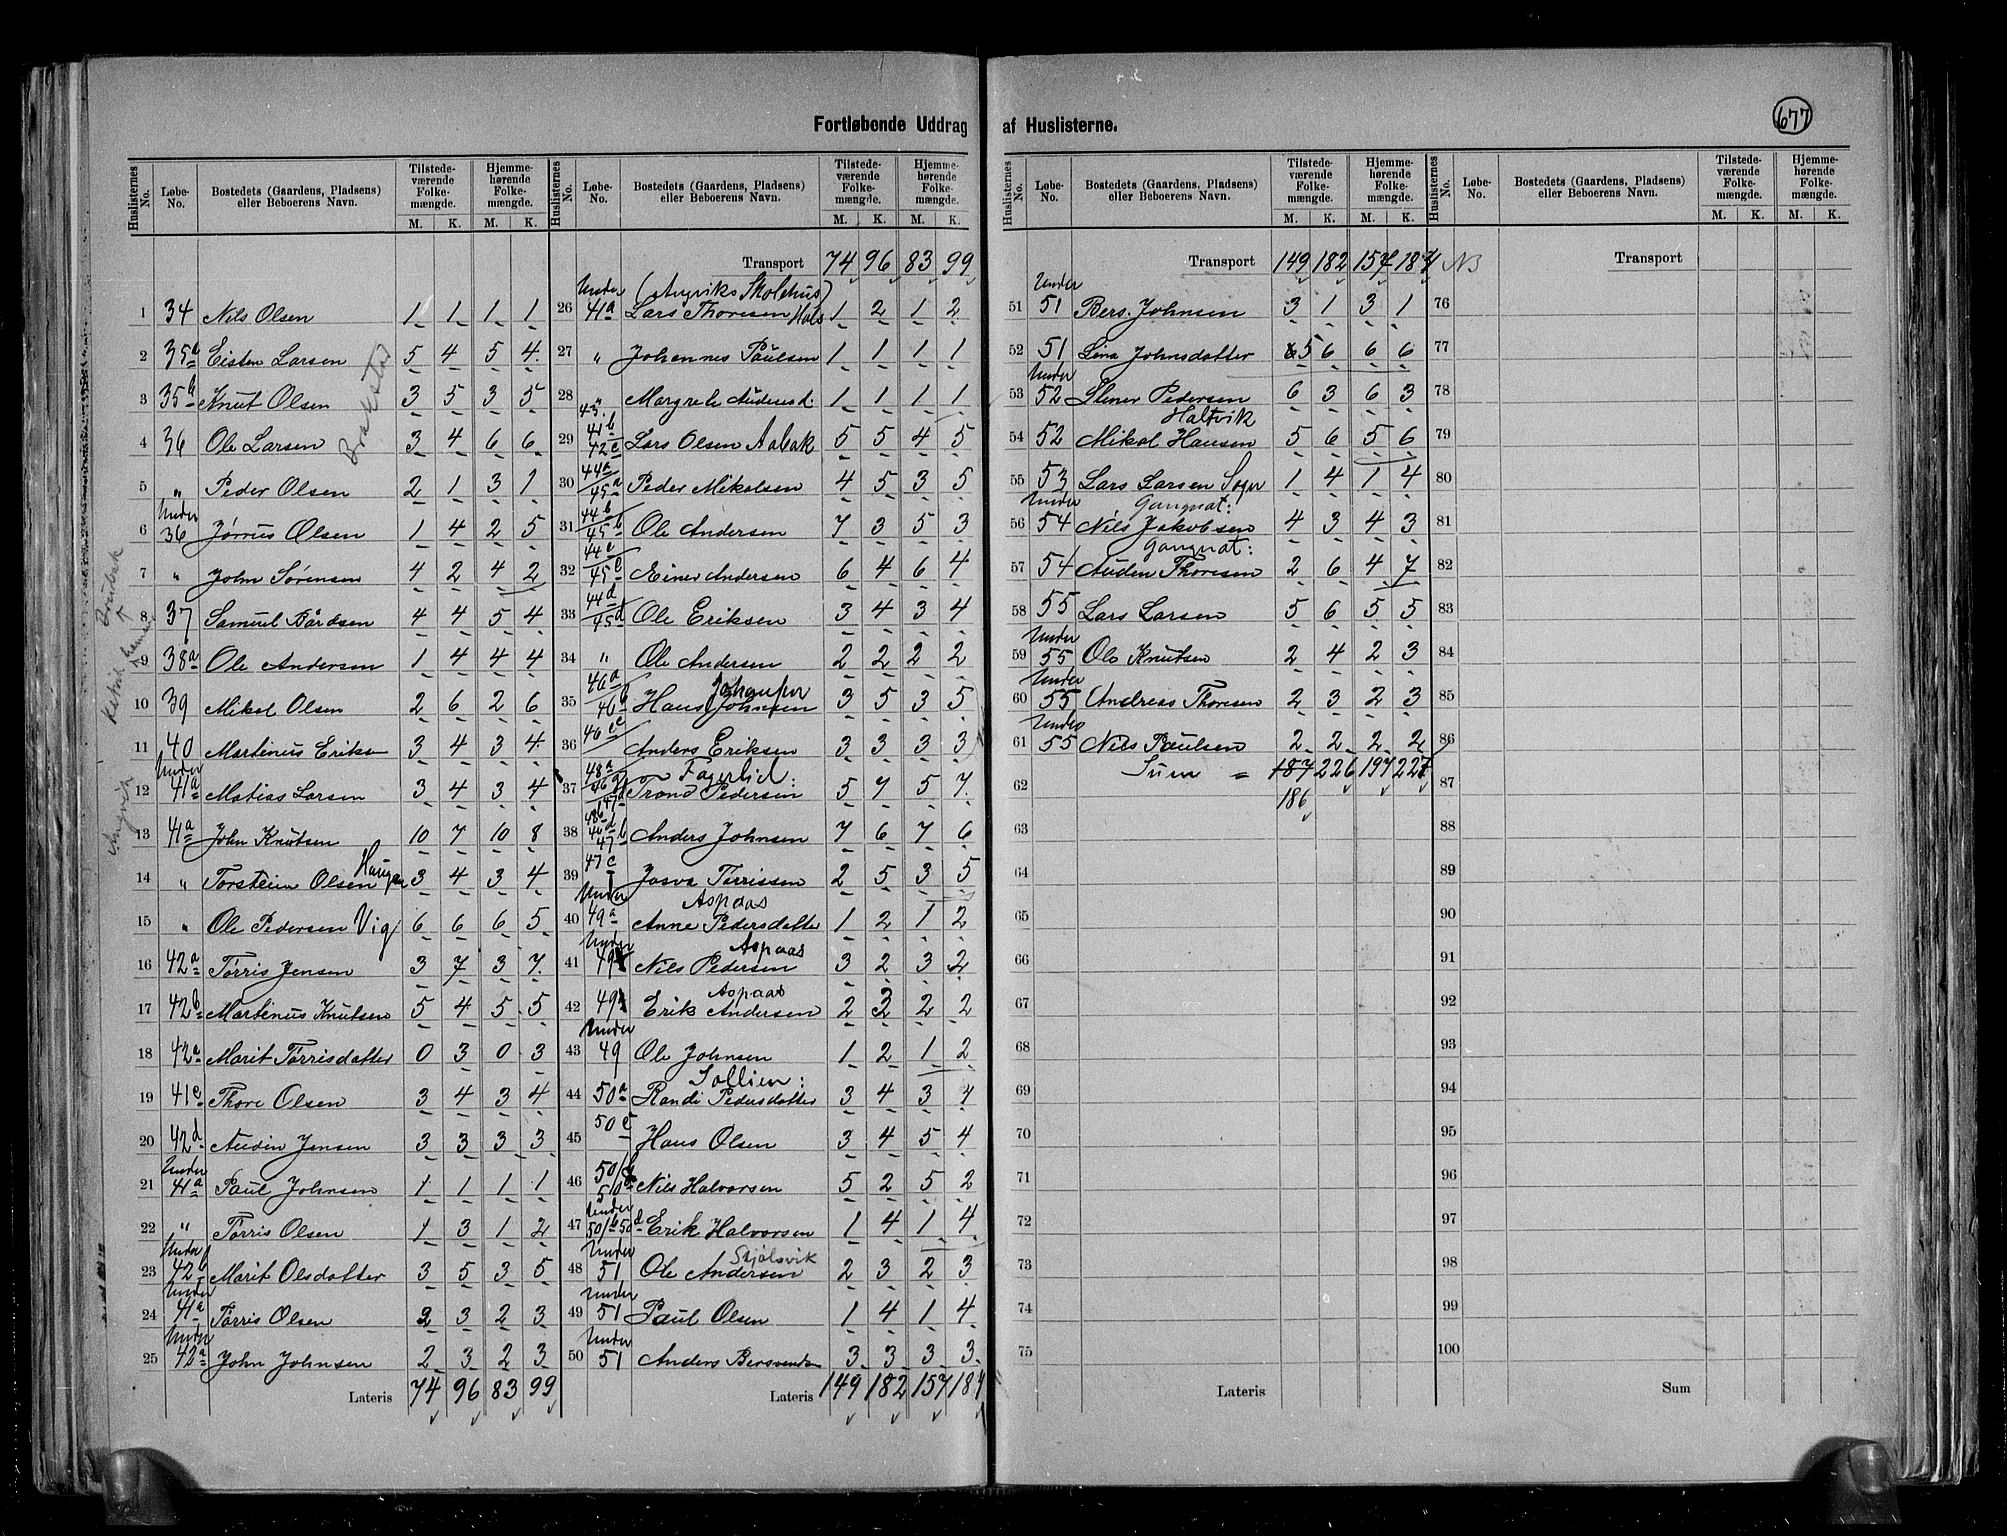 677
Fortløbende Uddrag af Huslisterne.
Huslisternes No. Løbe-No. Bostedets (Gaardens, Pladsens) eller Beboerens Navn. Tilstedeværende Folkemængde. M. K. Hjemmehørende Folkemængde. M. K.
1 34 Nils Olsen 1 1 1 1
2 35a Eisten Larsen 5 4 5 4
3 35b Knut Olsen 3 5 3 5
4 36 Ole Larsen 3 4 6 6
5 " Peder Olsen 2 1 3 1
6 Under 36 Jørrus Olsen 1 4 2 5
7 " John Sørensen 4 2 4 2
8 37 Samuel Bårdsen 4 4 5 4
9 38a Ole Andersen 1 4 4 4
10 39 Mikal Olsen 2 6 2 6
11 40 Martinus Eriks 3 4 3 4
12 Under 41a Matias Larsen 3 4 3 4
13 41a John Knutsen 10 7 10 8
14 " Torstein Olsen Haugen 3 4 3 4
15 " Ole Pedersen Vig 6 6 6 5
16 42a Tørris Jensen 3 7 3 7
17 42b Martinus Knutsen 5 4 5 5
18 42a Marit Tørrisdatter 0 3 0 3
19 41c Thore Olsen 3 4 3 4
20 42d Audin Jensen 3 3 3 3
21 Under 41a Paul Johnsen 1 1 1 1
22 " Tørris Olsen 1 3 1 2
23 Under 42b Marit Olsdatter 3 5 3 5
24 Under 41a Tørris Olsen 2 3 2 3
25 Under 42a John Johnsen 2 3 2 3
Lateris 74 96 83 99
Brakstad
Angvik
Huslisternes No. Løbe-No. Bostedets (Gaardens, Pladsens) eller Beboerens Navn. Tilstedeværende Folkemængde. M. K. Hjemmehørende Folkemængde. M. K.
Transport 74 96 83 99
(Angviks Skolehus)
26 Under 41a Lars Thoresen Hals 1 2 1 2
27 " Johannes Paulsen 1 1 1 1
28 " Margrete Andersd. 1 1 1 1
29 43. 41b 42c Lars Olsen Aabak 5 5 4 5
30 44a 45a Peder Mikelsen 4 5 3 5
31 44b 45b Ole Andersen 7 3 5 3
32 44c 45c Einer Andersen 6 4 6 4
33 44d 45d Ole Eriksen 3 4 3 4
34 " Ole Andersen 2 2 2 2
35 46a 46b Hans Johnsen 3 5 3 5
36 46c Anders Eriksen 3 3 3 3
Fagerlid:
37 48a 47a Trond Pedersen 5 7 5 7
38 48b 46d 47b Anders Johnsen 7 6 7 6
39 47c Josva Tørrissen 2 5 3 5
Aspaas
40 Under 49a Anne Pedersdatter 1 2 1 2
Aspaas
41 Under 49 Nils Pedersen 3 2 3 2
Aspaas
42 49 Erik Andersen 2 3 2 2
43 Under 49 Ole Johnsen 1 2 1 2
Sollien:
44 50a Randi Pedersdatter 3 4 3 4
45 50c Hans Olsen 3 4 5 4
46 50 Nils Halvorsen 5 2 5 2
47 Under 50/b 50d Erik Halvorsen 1 4 1 4
Stjølsvik
48 Under 51 Ole Andersen 2 3 2 3
49 Under 51 Paul Olsen 1 4 1 4
50 Under 51 Anders Bersvends 3 3 3 3
Lateris 149 182 157 184
Huslisternes No. Løbe-No. Bostedets (Gaardens, Pladsens) eller Beboerens Navn. Tilstedeværende Folkemængde. M. K. Hjemmehørende Folkemængde. M. K.
Transport 149 182 157 187
51 Under 51 Bers. Johnsen 3 1 3 1
52 51 Lina Johnsdatter 5 6 6 6
53 Under 52 Stener Pedersen 6 3 6 3
Haltvik
54 52 Mikal Hansen 5 6 5 6
55 53 Lars Larsen Soger 1 4 1 4
Gangnat:
56 Under 54 Nils Jakobsen 4 3 4 3
Gangnat:
57 54 Auden Thoresen 2 6 4 7
58 55 Lars Larsen 5 6 5 5
59 Under 55 Ole Knutsen 2 4 2 3
60 Under 55 Andreas Thoresen 2 3 2 3
61 Under 55 Nils Paulsen 2 2 2 2
62 Sum = 187 226 197 227
186
63
64
65
66
67
68
69
70
71
72
73
74
75
Lateris
Huslisternes No. Løbe-No. Bostedets (Gaardens, Pladsens) eller Beboerens Navn. Tilstedeværende Folkemængde. M. K. Hjemmehørende Folkemængde. M. K.
NB Transport
76
77
78
79
80
81
82
83
84
85
86
87
88
89
90
91
92
93
94
95
96
97
98
99
100
Sum